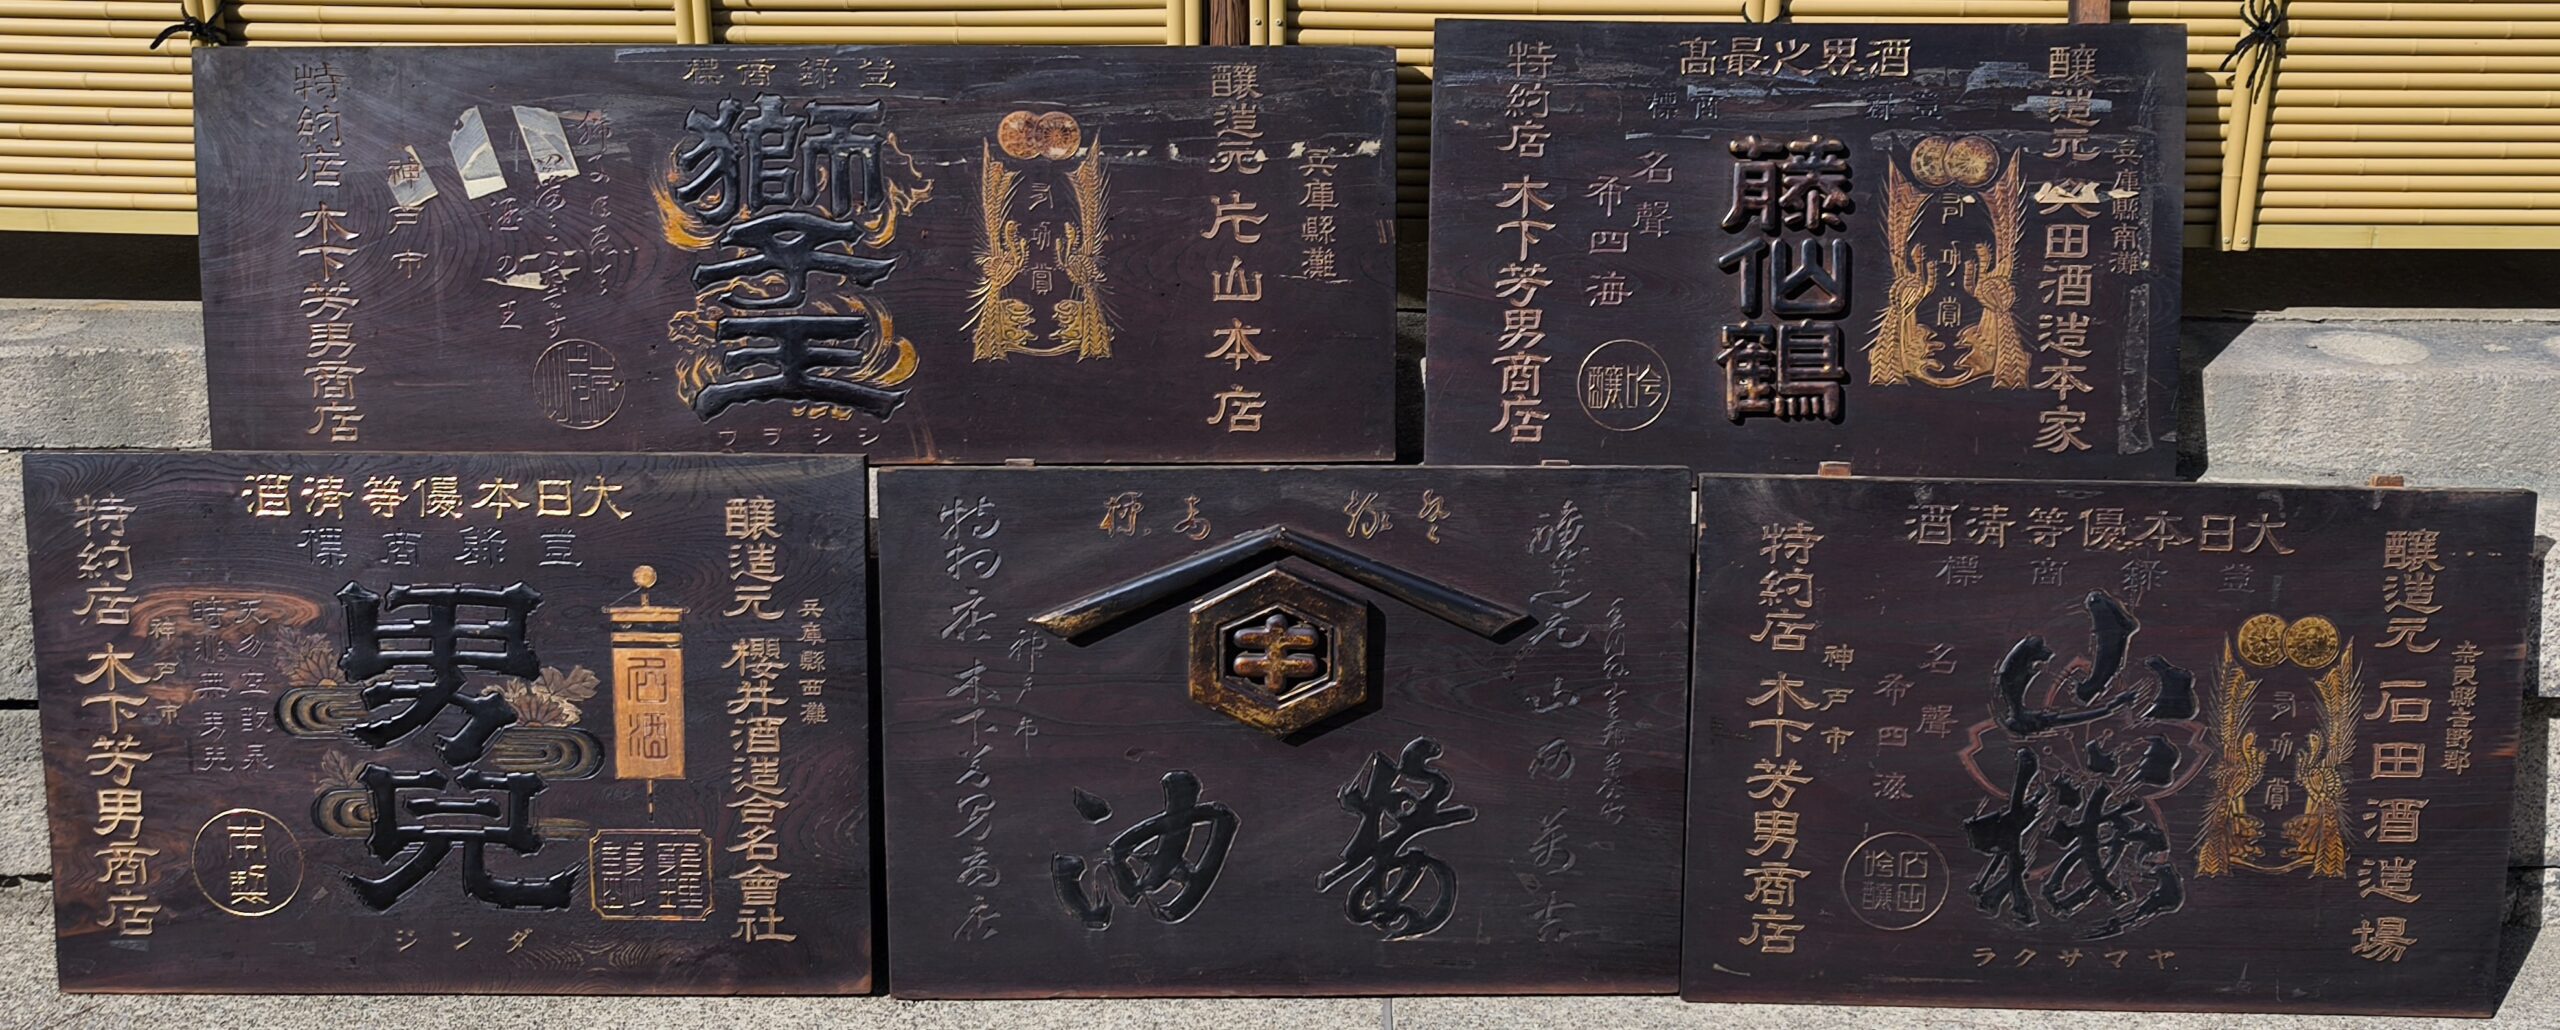 登録商標
醸造元 片山本店
兵庫縣灘
有功賞
獅子王
シシワウ
酒の王
神戸市
特約店 木下芳男商店
酒界之最高
登録商標
兵庫縣南灘
田酒造本家
醸造元
有功賞
藤仙鶴
名聲
希四海
吟醸
特約店 木下芳男商店
大日本優等清酒
登録商標
兵庫縣西灘
醸造元 櫻井酒造合名會社
名酒
男兒
ダンジ
天勿空勾践
時非無男兒
神戸市
特約店 木下芳男商店
登録商標
醸造元 山
醤油
神戸市
特約店 木下芳男商店
大日本優等清酒
登録商標
奈良縣吉野郡
醸造元 石田酒造場
有功賞
山櫻
ヤマサクラ
名聲
希四海
石田吟醸
神戸市
特約店 木下芳男商店